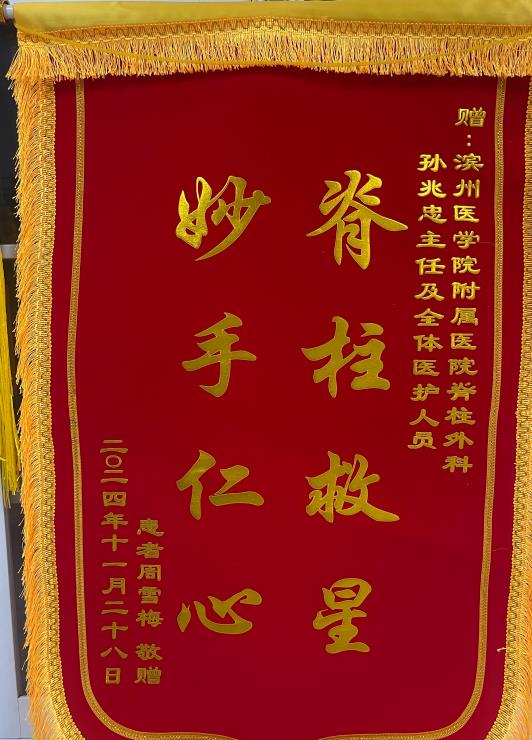 赠：滨州医学院附属医院脊柱外科
孙兆忠主任及全体医护人员
脊柱救星
妙手仁心
患者周雪梅 敬赠
二〇二四年十一月二十八日